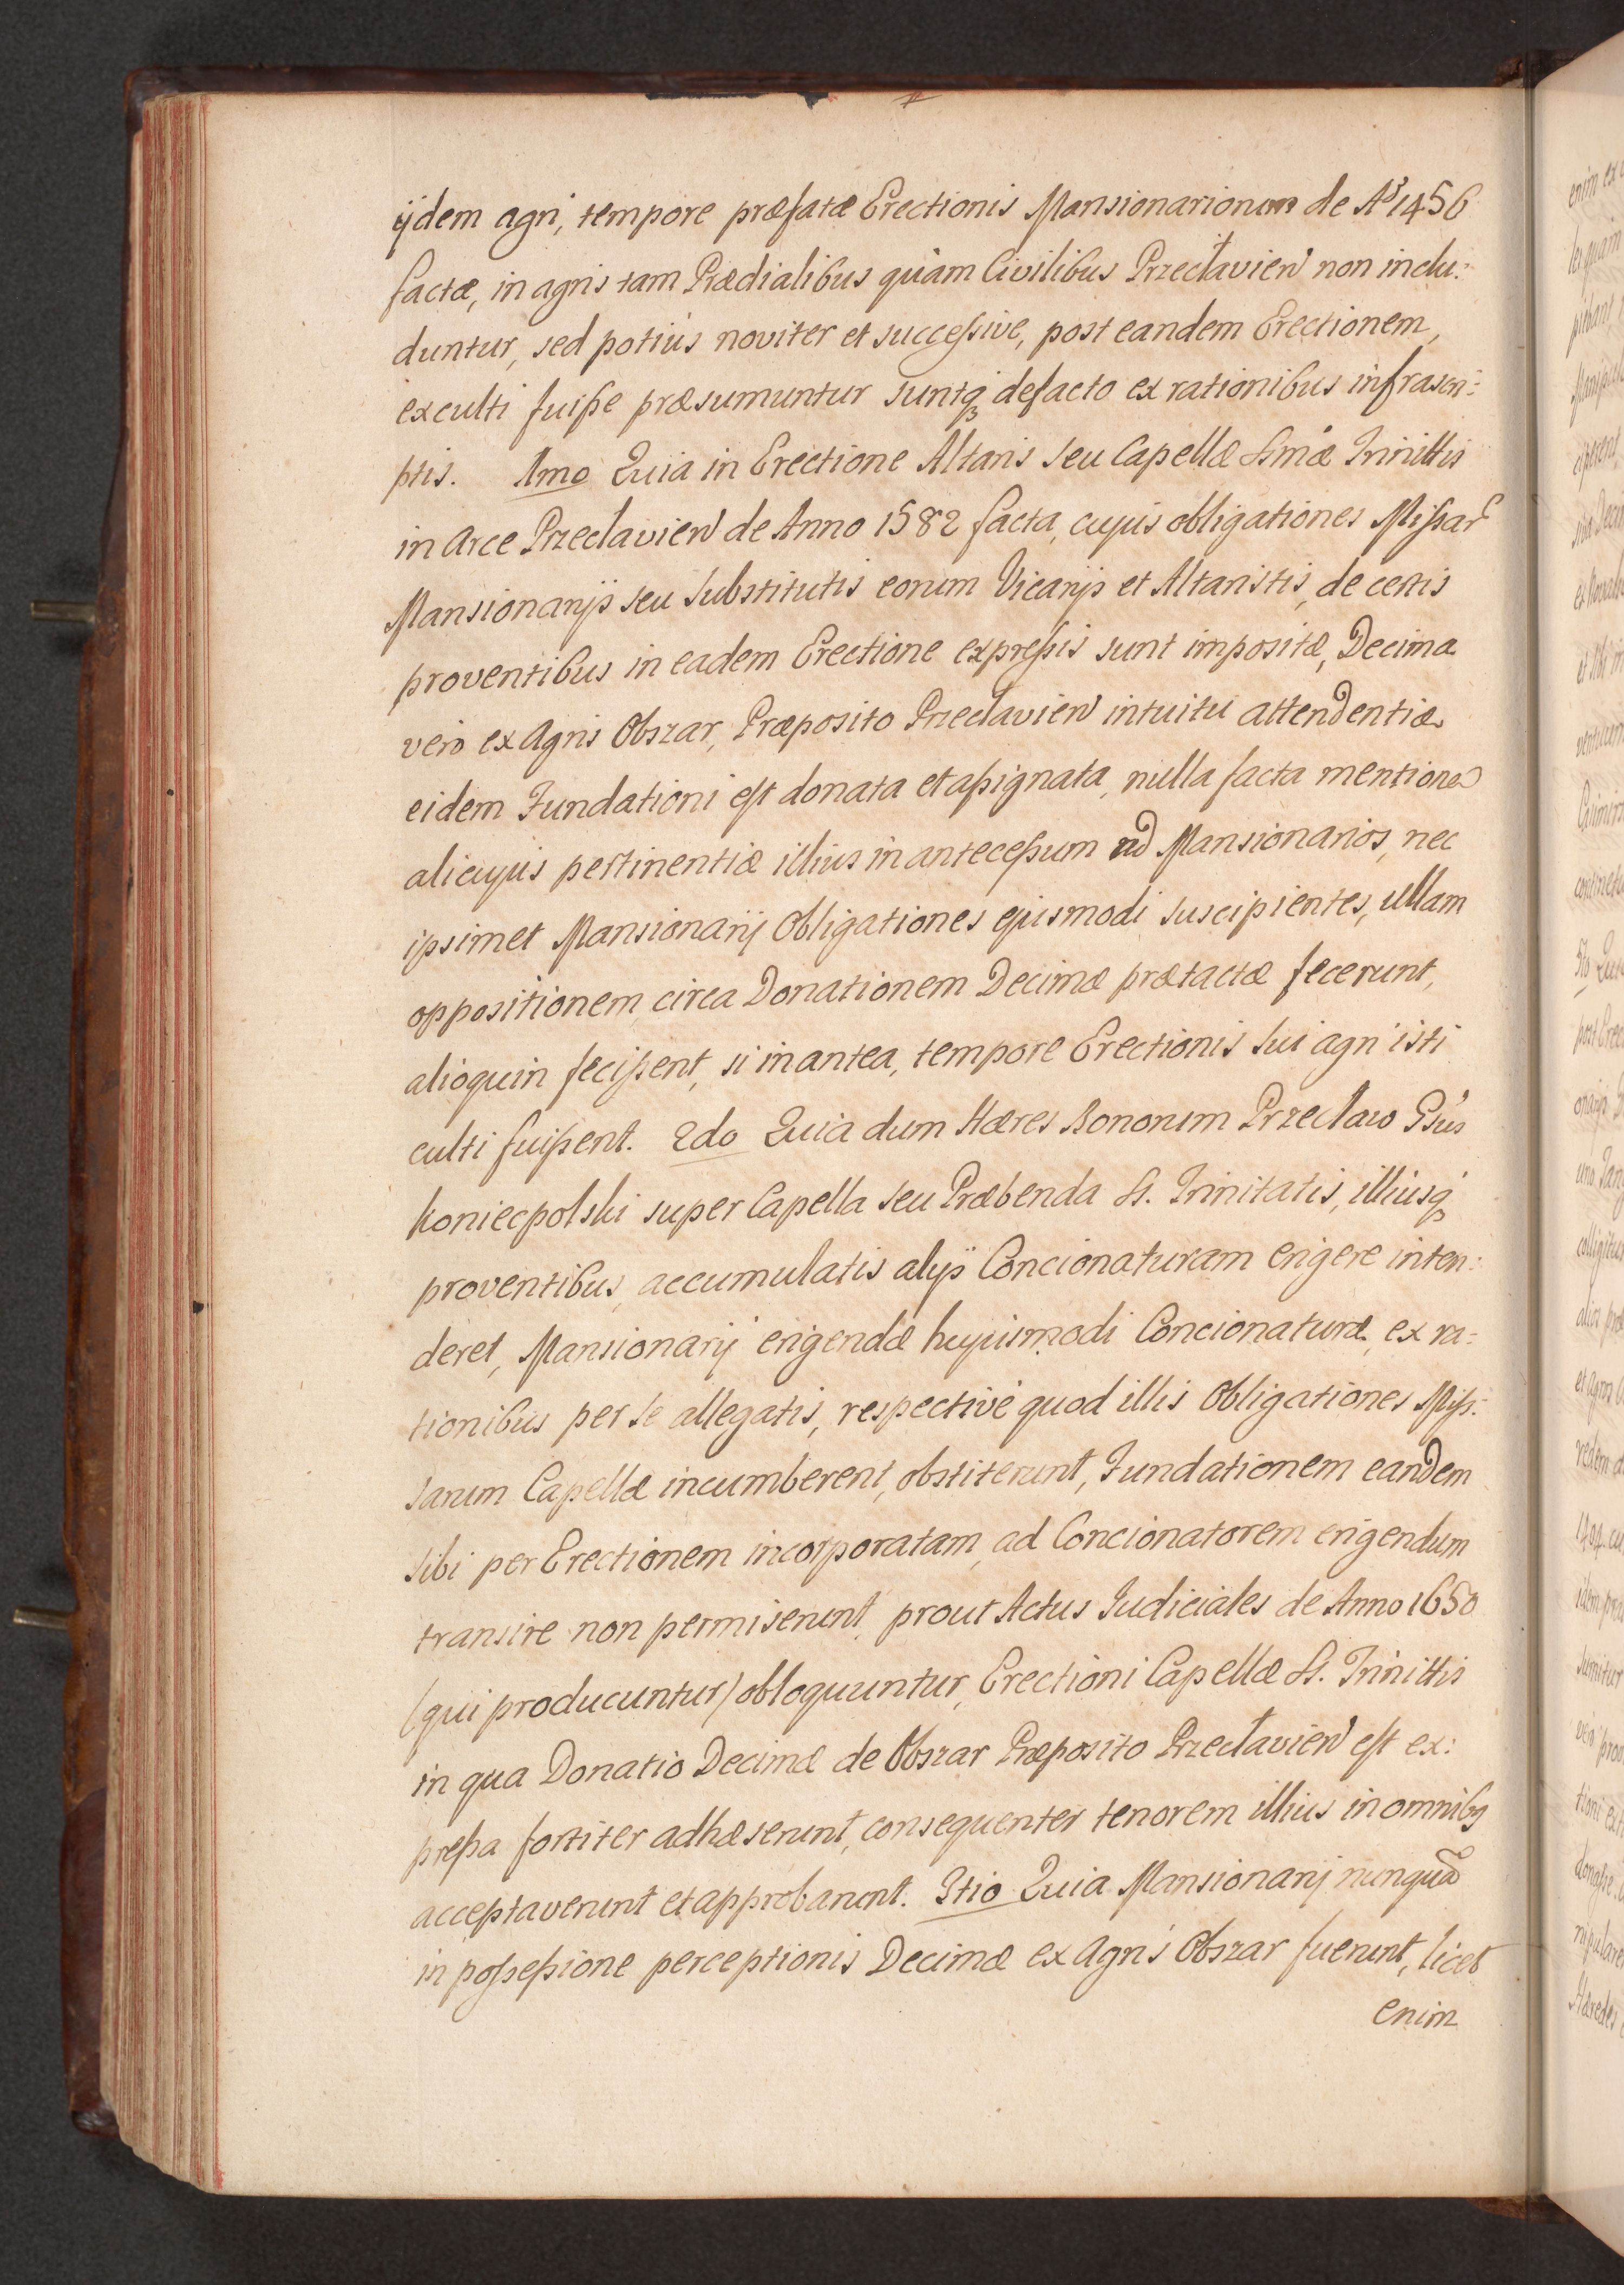 ijdem agri, tempore præfatæ Erectionis Mansionariorum de Aō 1456
factæ, in agris tam Prædialibus quàm Civilibus Przecłavien̄ non inclu:
duntur, sed potiùs noviter et successive, post eandem Erectionem,
exculti fuisse præsumuntur suntq; defacto ex rationibus infrascri:
ptis. 1mo Quia in Erectione Altaris seu Capellæ Ssmæ Trinittis
in Arce Przecłavien̄ de Anno 1582 facta, cujus obligationes Missar̄
Mansionarijs seu Substitutis eorum Vicarijs et Altaristis, de certis
proventibus in eadem Erectione expressis sunt impositæ, Decima
verò ex Agris Obszar, Præposito Przecłavien̄ intuitu attendentiæ
eidem Fundationi est donata et assignata, nulla facta mentione
alicujus pertinentiæ illius in antecessum ad Mansionarios, nec
ipsimet Mansionarij Obligationes ejusmodi suscipientes, ullam
oppositionem, circa Donationem Decimæ prætactæ fecerunt,
alioquin fecissent, si in antea, tempore Erectionis sui agri isti
culti fuissent. 2do Quia dum Hæres Bonorum Przecław Gsūs
Koniecpolski super Capella seu Præbenda SS. Trinitatis, illiusq;
proventibus, accumulatis alijs Concionaturam erigere inten:
deret, Mansionarij erigendæ hujusmodi Concionaturæ, ex ra:
tionibus per se allegatis, respectivè quod illis Obligationes Miss:
sarum Capellæ incumberent, obstiterunt, Fundationem eandem
sibi per Erectionem incorporatam, ad Concionatorem erigendum
transire non permiserunt, prout Actus Judiciales de Anno 1650
(qui producuntur) obloquuntur, Erectioni Capellæ SS. Trinittis
in qua Donatio Decimæ de Obszar Præposito Przecłavien̄ est ex:
pressa fortiter adhæserunt, consequenter tenorem illius in omnibq
acceptaverunt et approbarunt. 3tio Quia Mansionarij nunquā
in possessione perceptionis Decimæ ex Agris Obszar fuerunt, licet
enim